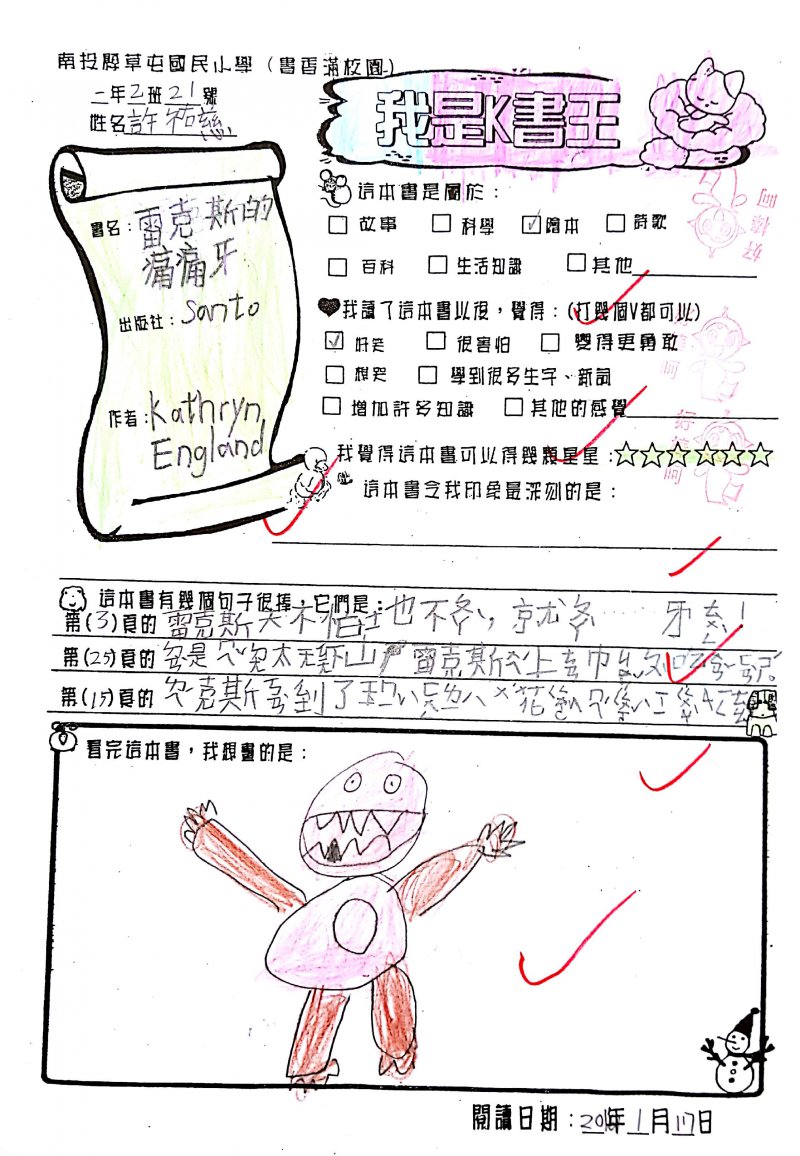 南投縣草屯國民小學（書香滿校園）
二年2班21號
姓名許祐慈
我是K書王
書名：雷克斯的
痛痛牙
出版社：Santo
作者：Kathryn,
England
這本書是屬於：
□ 故事 □ 科學 ☑ 繪本 □ 詩歌
□ 百科 □ 生活知識 □ 其他
我讀了這本書以後，覺得：(打幾個V都可以)
☑ 好笑 □ 很害怕 □ 變得更勇敢
□ 想哭 □ 學到很多生字、新詞
□ 增加許多知識 □ 其他的感覺
我覺得這本書可以得幾顆星星：☆☆☆☆☆☆
這本書令我印象最深刻的是：
這本書有幾個句子很棒，它們是：
第(3)頁的 雷克斯天不怕ㄉ也不怕，就怕……牙
第(25)頁的
第(15)頁的 克斯
看完這本書，我想畫的是：
閱讀日期：2018年1月17日
好棒呵